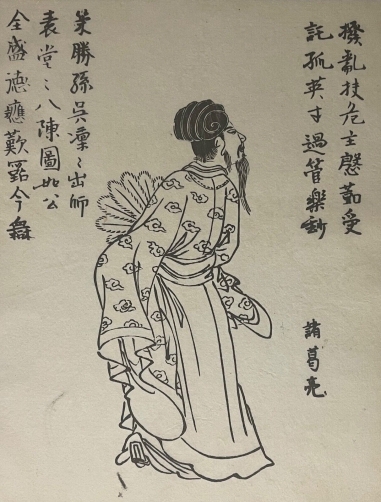 撥亂扶危主慇懃受
託孤英才過管樂妙
策勝孫吳凜〻出師
表堂〻八陳圖如公
全盛德應歎古今無
諸葛亮